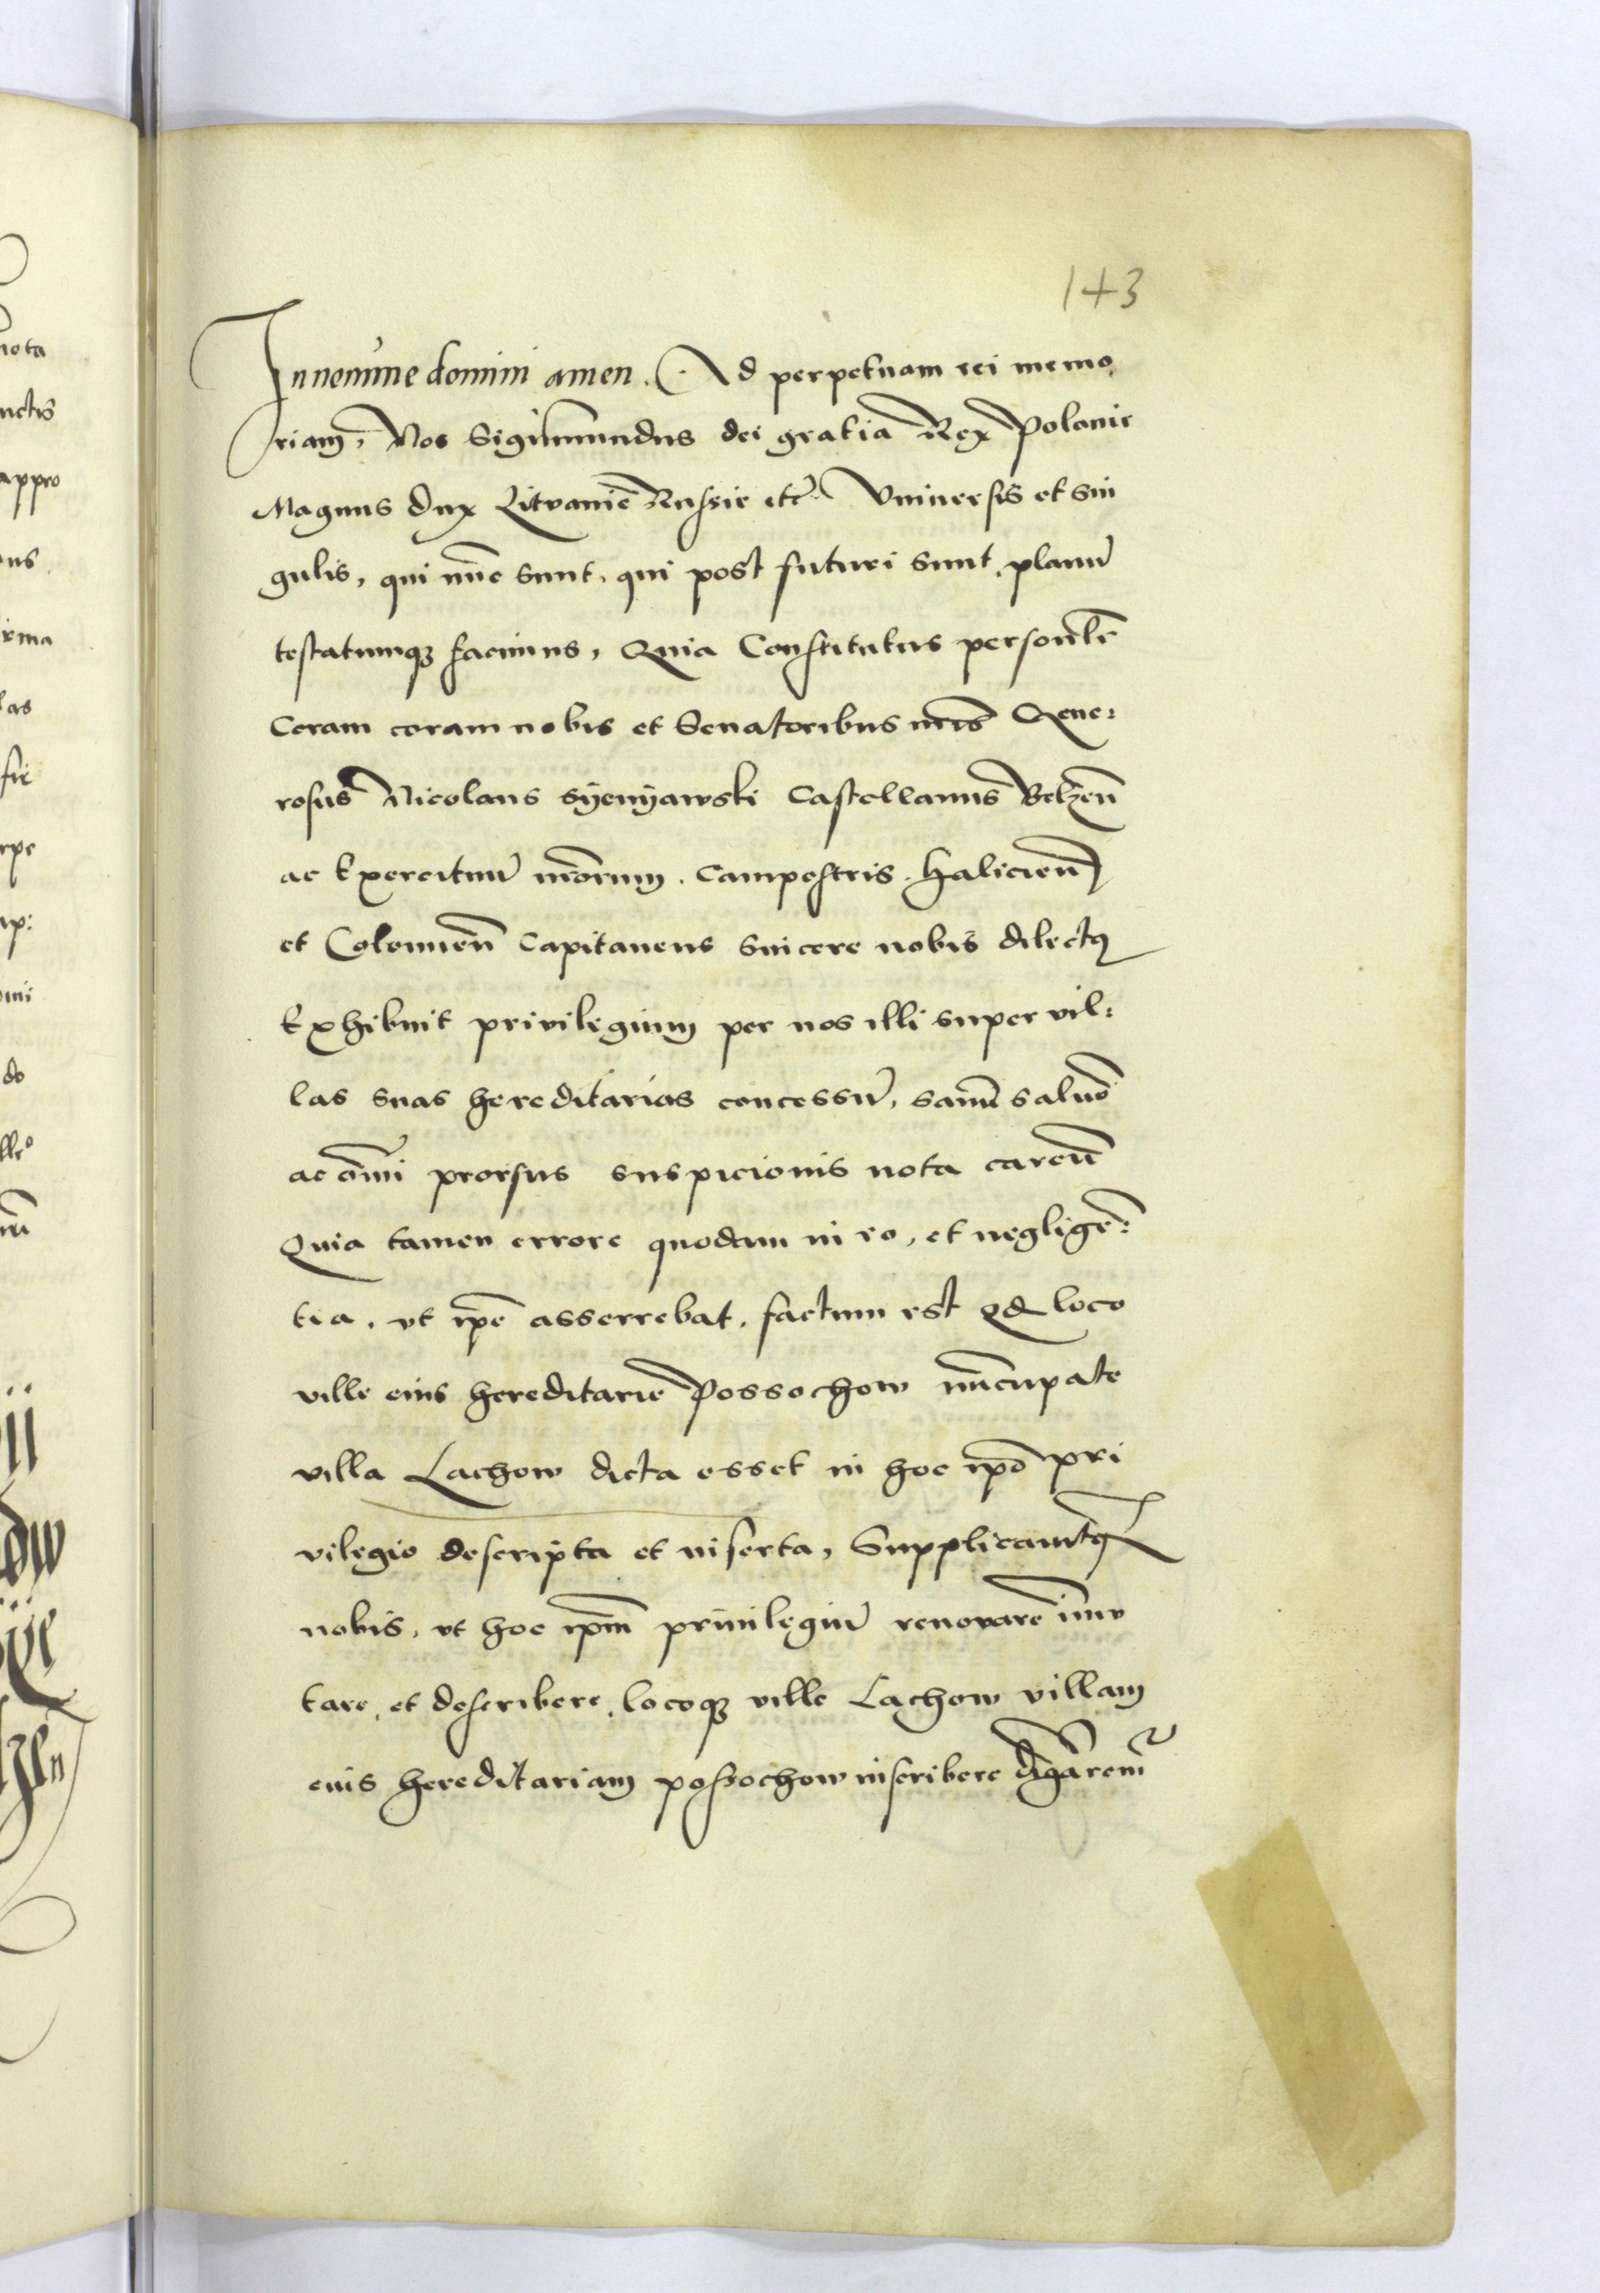 143
In nomine domini amen. Ad perpetuam rei memo
riam, Nos Sigismundus dei gratia Rex Polonie
Magnus Dux Litvanie Russie etc. Vniversis et sin
gulis, qui nūc sunt, qui post futuri sunt, planū
testatumqȝ facimus, Quia Constitutus personlr̄
Coram coram nobis et Senatoribus nr̄is Gene:
rosus Nicolaus Syenyawski Castellanus Belzeñ
ac Exercituū nr̄orum, Campestris, Halicieñ
et Colomieñ Capitaneus Sincere nobis dilectꝰ
Exhibuit privilegium per nos illi super vil:
las suas hereditarias concessū, sanū saluū
ac om̄i prorsus suspicionis nota careñ
Quia tamen errore quodam in eo, et negligē:
tia, vt ip̄e asserrebat, factum est qd loco
ville eius hereditarie Possochow nūcupate
villa Lachow dicta esset in hoc ip̄o pri
vilegio descripta et inserta, Supplicavitqȝ
nobis, vt hoc ip̄m priuilegiū renovare im̄u
tare, et describere, locoqȝ ville Lachow villam
eius hereditariam possochow inscribere dignarem̄
nota
nctis
appro
ns
irma
las
rpe
do